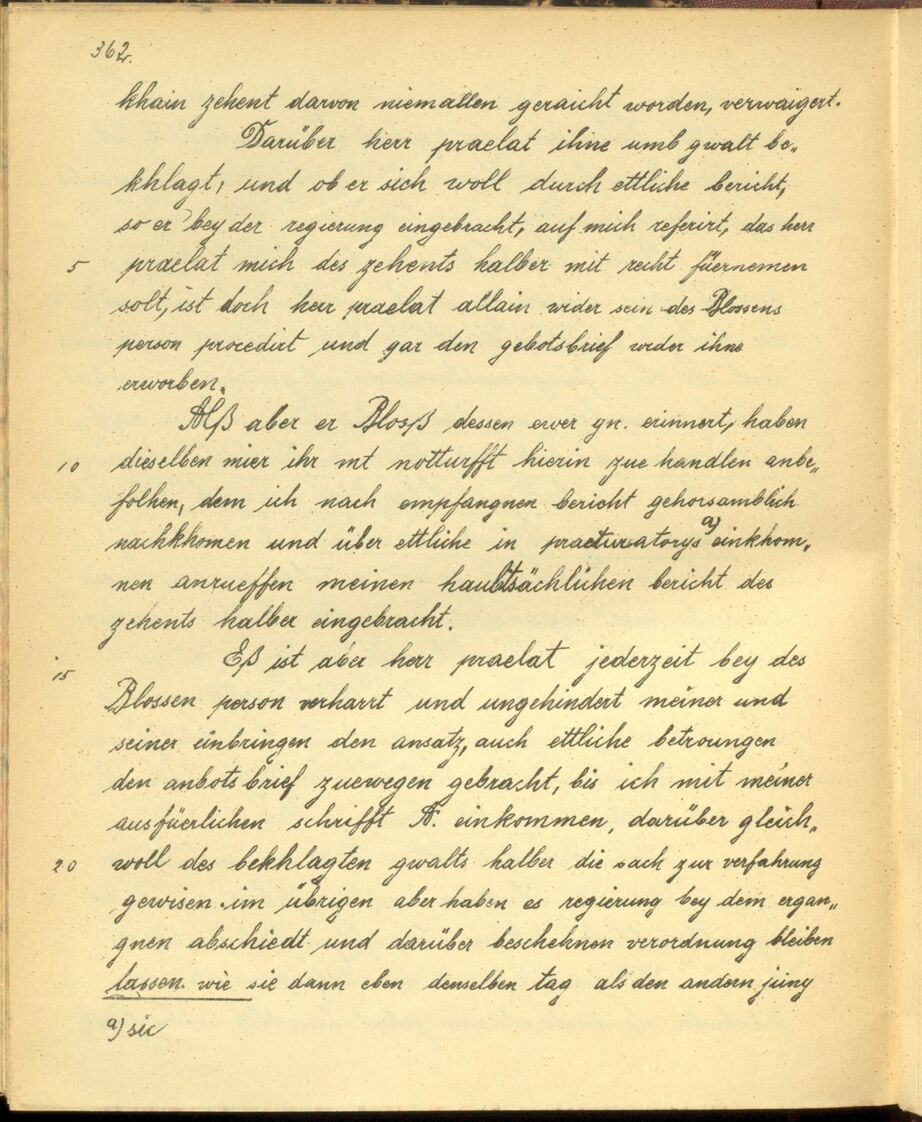 362.
khain zehent darvon niemallen geraicht worden, verwaigert.
Darüber herr praelat ihne umb gwalt be„
khlagt, und ob er sich woll durch ettliche bericht,
so er bey der regierung eingebracht, auf mich referirt, das herr
5 praelat mich des zehents halber mit recht füernemen
solt, ist doch herr praelat allain wider sein des Blossens
person procedirt und gar den gebotsbrief wider ihne
erworben.
Alß aber er Blosß dessen ewer gn. erinnert, haben
10 dieselben mier ihr mt notturfft hierin zue handlen anbe„
folhen, dem ich nach empfangnen bericht gehorsamblich
nachkhomen und über ettliche in praeturatorys a) einkhom„
nen anrueffen meinen haubtsächlichen bericht des
zehents halber eingebracht.
15 Eß ist aber herr praelat jederzeit bey des
Blossen person verharrt und ungehindert meiner und
seiner einbringen den ansatz, auch ettliche betroungen
den anbotsbrief zuewegen gebracht, bis ich mit meiner
ausfüerlichen schrifft A. einkommen, darüber gleich„
20 woll des bekhlagten gwalts halber die sach zur verfahrung
gewisen. im übrigen aber haben es regierung bey dem ergan„
gnen abschiedt und darüber beschehnen verordnung bleiben
lassen. wie sie dann eben denselben tag als den andern juny
a) sic